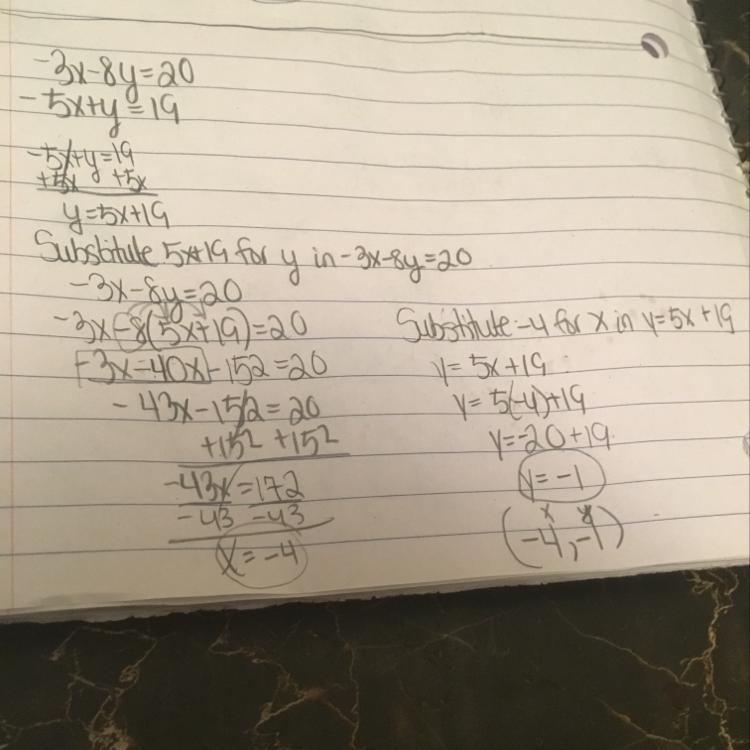 -3x-8y=20
-5x+y=19
-5x+y=19
+5x +5x
y=5x+19
Substitute 5x+19 for y in -3x-8y=20
-3x-8y=20
-3x-8(5x+19)=20
-3x-40x-152=20
-43x-152=20
+152 +152
-43x=172
-43 -43
x=-4
Substitute -4 for x in y=5x+19
y=5x+19
y=5(-4)+19
y=-20+19
y=-1
x y
(-4,-1)